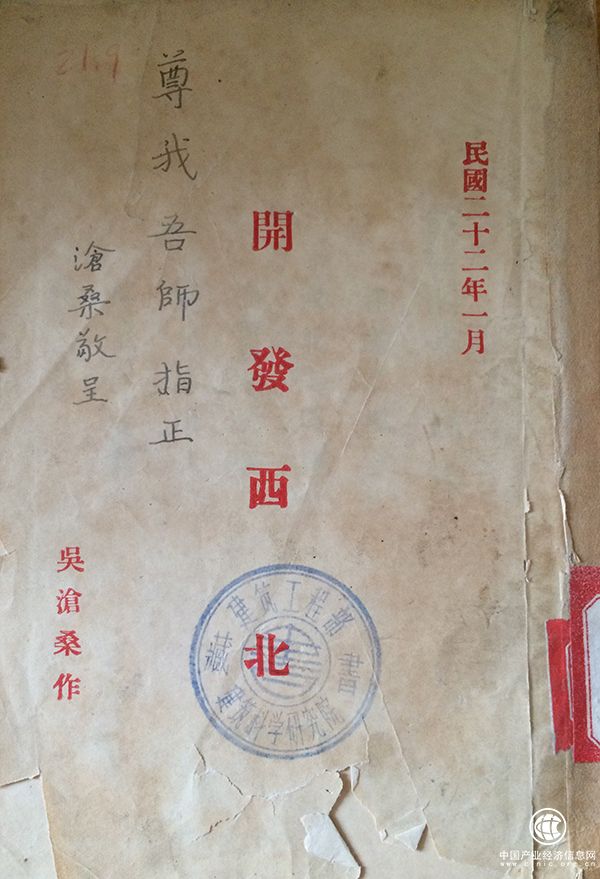 民國二十二年一月
開發西北
尊我吾師指正
滄桑敬呈
吳滄桑作
21.9
建筑工程部
藏書
建筑科学研究院
中国产业经济信息网
www.cinic.org.cn